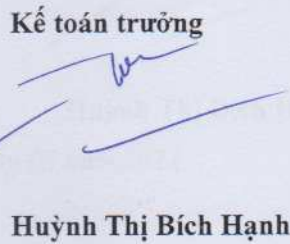 Kế toán trưởng
Huỳnh Thị Bích Hạnh